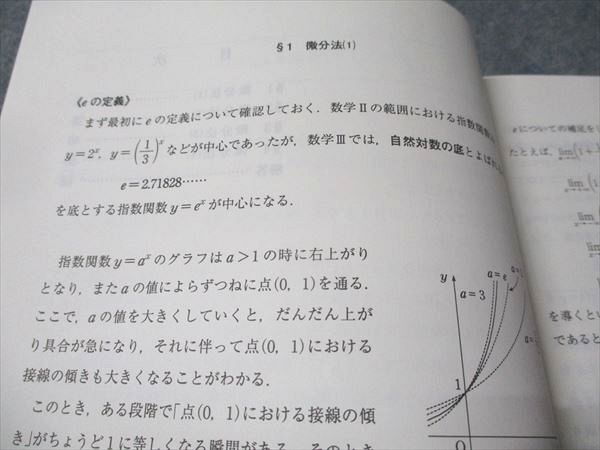 §1 微分法(1)
《eの定義》
まず最初に e の定義について確認しておく．数学Ⅱの範囲における指数関数
y=2^x，y=(1/3)^x などが中心であったが，数学Ⅲでは，自然対数の底とよばれ
e=2.71828……
を底とする指数関数 y=e^x が中心になる．
指数関数 y=a^x のグラフは a>1 の時に右上がり
となり，また a の値によらずつねに点(0, 1)を通る．
ここで，a の値を大きくしていくと，だんだん上が
り具合が急になり，それに伴って点(0, 1)における
接線の傾きも大きくなることがわかる．
このとき，ある段階で「点(0, 1)における接線の傾
き」がちょうど1に等しくなる瞬間がある．そのとき
y
a=e
a=3
1
O
eについての補足を
たとえば，lim(1+
lim(1
lim
lim
lim
を導くとい
であると